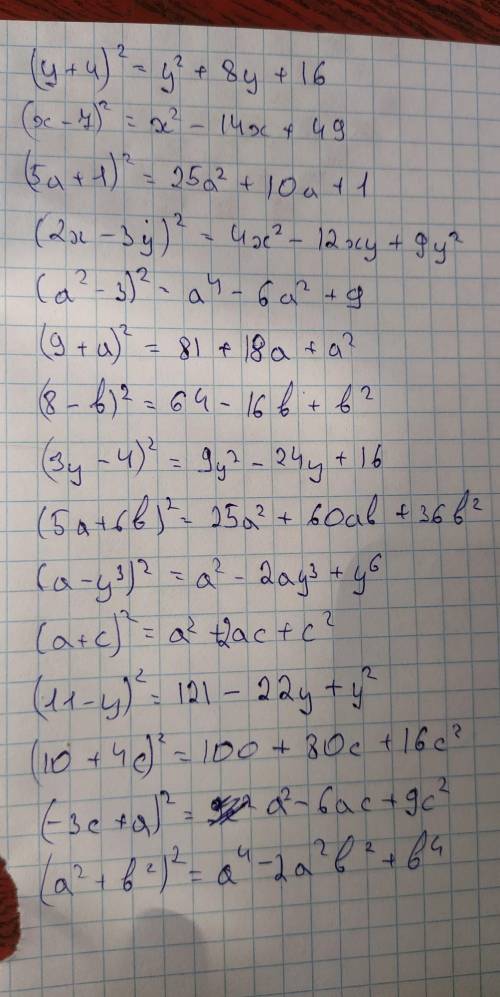 (y+4)² = y² + 8y + 16
(x-7)² = x² - 14x + 49
(5a+1)² = 25a² + 10a + 1
(2x-3y)² = 4x² - 12xy + 9y²
(a²-3)² = a⁴ - 6a² + 9
(9+a)² = 81 + 18a + a²
(8-b)² = 64 - 16b + b²
(3y-4)² = 9y² - 24y + 16
(5a+6b)² = 25a² + 60ab + 36b²
(a-y³)² = a² - 2ay³ + y⁶
(a+c)² = a² + 2ac + c²
(11-y)² = 121 - 22y + y²
(10+4c)² = 100 + 80c + 16c²
(-3c+a)² = a² - 6ac + 9c²
(a²+b²)² = a⁴ - 2a²b² + b⁴